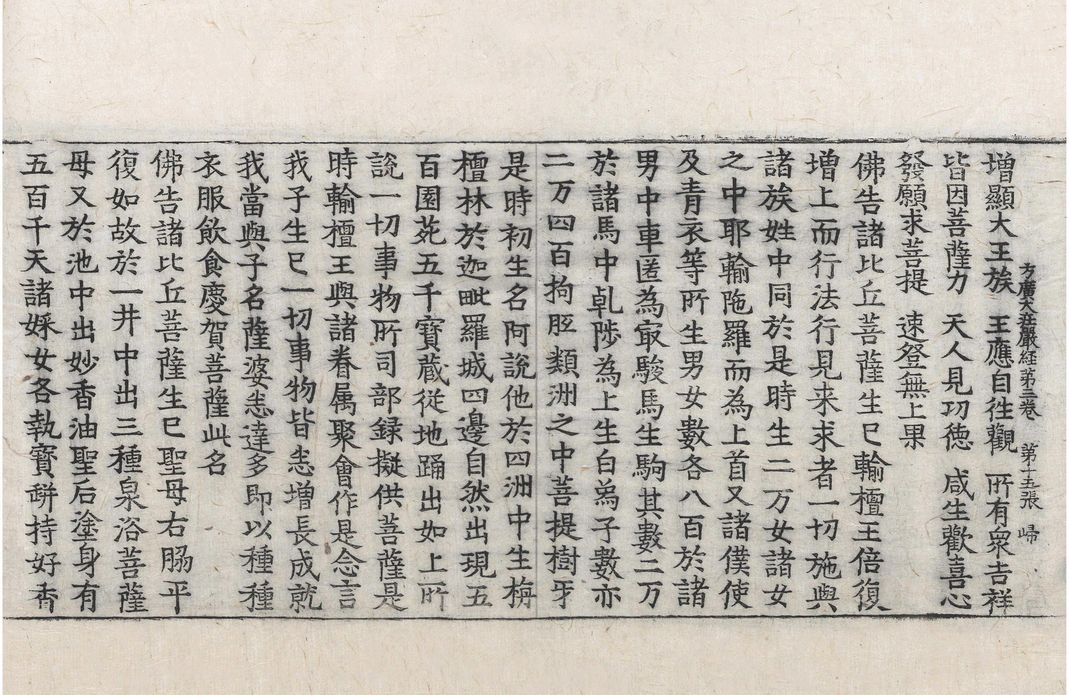 方廣大莊嚴経第三卷　第十五張　歸
增顯大王族　王應自往觀　所有眾吉祥
皆因菩薩力　天人見功徳　咸生歡喜心
發願求菩提　速登無上果
佛告諸比丘菩薩生已輸檀王倍復
增上而行法行見来求者一切施與
諸族姓中同於是時生二万女諸女
之中耶輸陁羅而為上首又諸僕使
及青衣等所生男女數各八百於諸
男中車匿為㝡駿馬生駒其數二万
於諸馬中乹陟為上生白為子數亦
二万四百拘胝類洲之中菩提樹牙
是時初生名阿說他於四洲中生栴
檀林於迦毗羅城四邊自然出現五
百園苑五千寶蔵従地踊出如上所
說一切事物所司部録擬供菩薩是
時輸檀王與諸眷属聚會作是念言
我子生已一切事物皆悉增長成就
我當與子名薩婆悉達多即以種種
衣服飲食慶賀菩薩此名
佛告諸比丘菩薩生已聖母右脇平
復如故於一井中出三種泉浴菩薩
母又於池中出妙香油聖后塗身有
五百千天諸婇女各執寶缾持好香